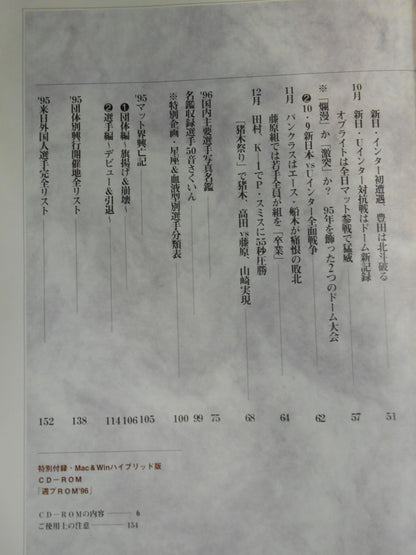 新日・インター初遭遇 豊田は北斗破る 51
10月 新日・Uインター対抗戦はドーム新記録
オブライトは全日マット参戦で猛威 57
※「爛漫」か?「激突」か? 95年を飾った2つのドーム大会
❷10・9新日本vsUインター全面戦争 62
11月 パンクラスはエース・船木が痛恨の敗北
藤原組では若手全員が組を「卒業」 64
12月 田村、K-1でP・スミスに55秒圧勝
「猪木祭り」で猪木、高田vs藤原、山崎実現 68
'96国内主要選手写真名鑑 75
名鑑収録選手50音さくいん 99
※特別企画・星座&血液型別選手分類表 100
'95マット界興亡記 105
❶団体編〜旗揚げ&崩壊〜 106
❷選手編〜デビュー&引退〜 114
'95団体別興行開催地全リスト 138
'95来日外国人選手完全リスト 152
特別付録・Mac&Winハイブリッド版
CD-ROM
「週プROM'96」
CD-ROMの内容 6
ご使用上の注意 154